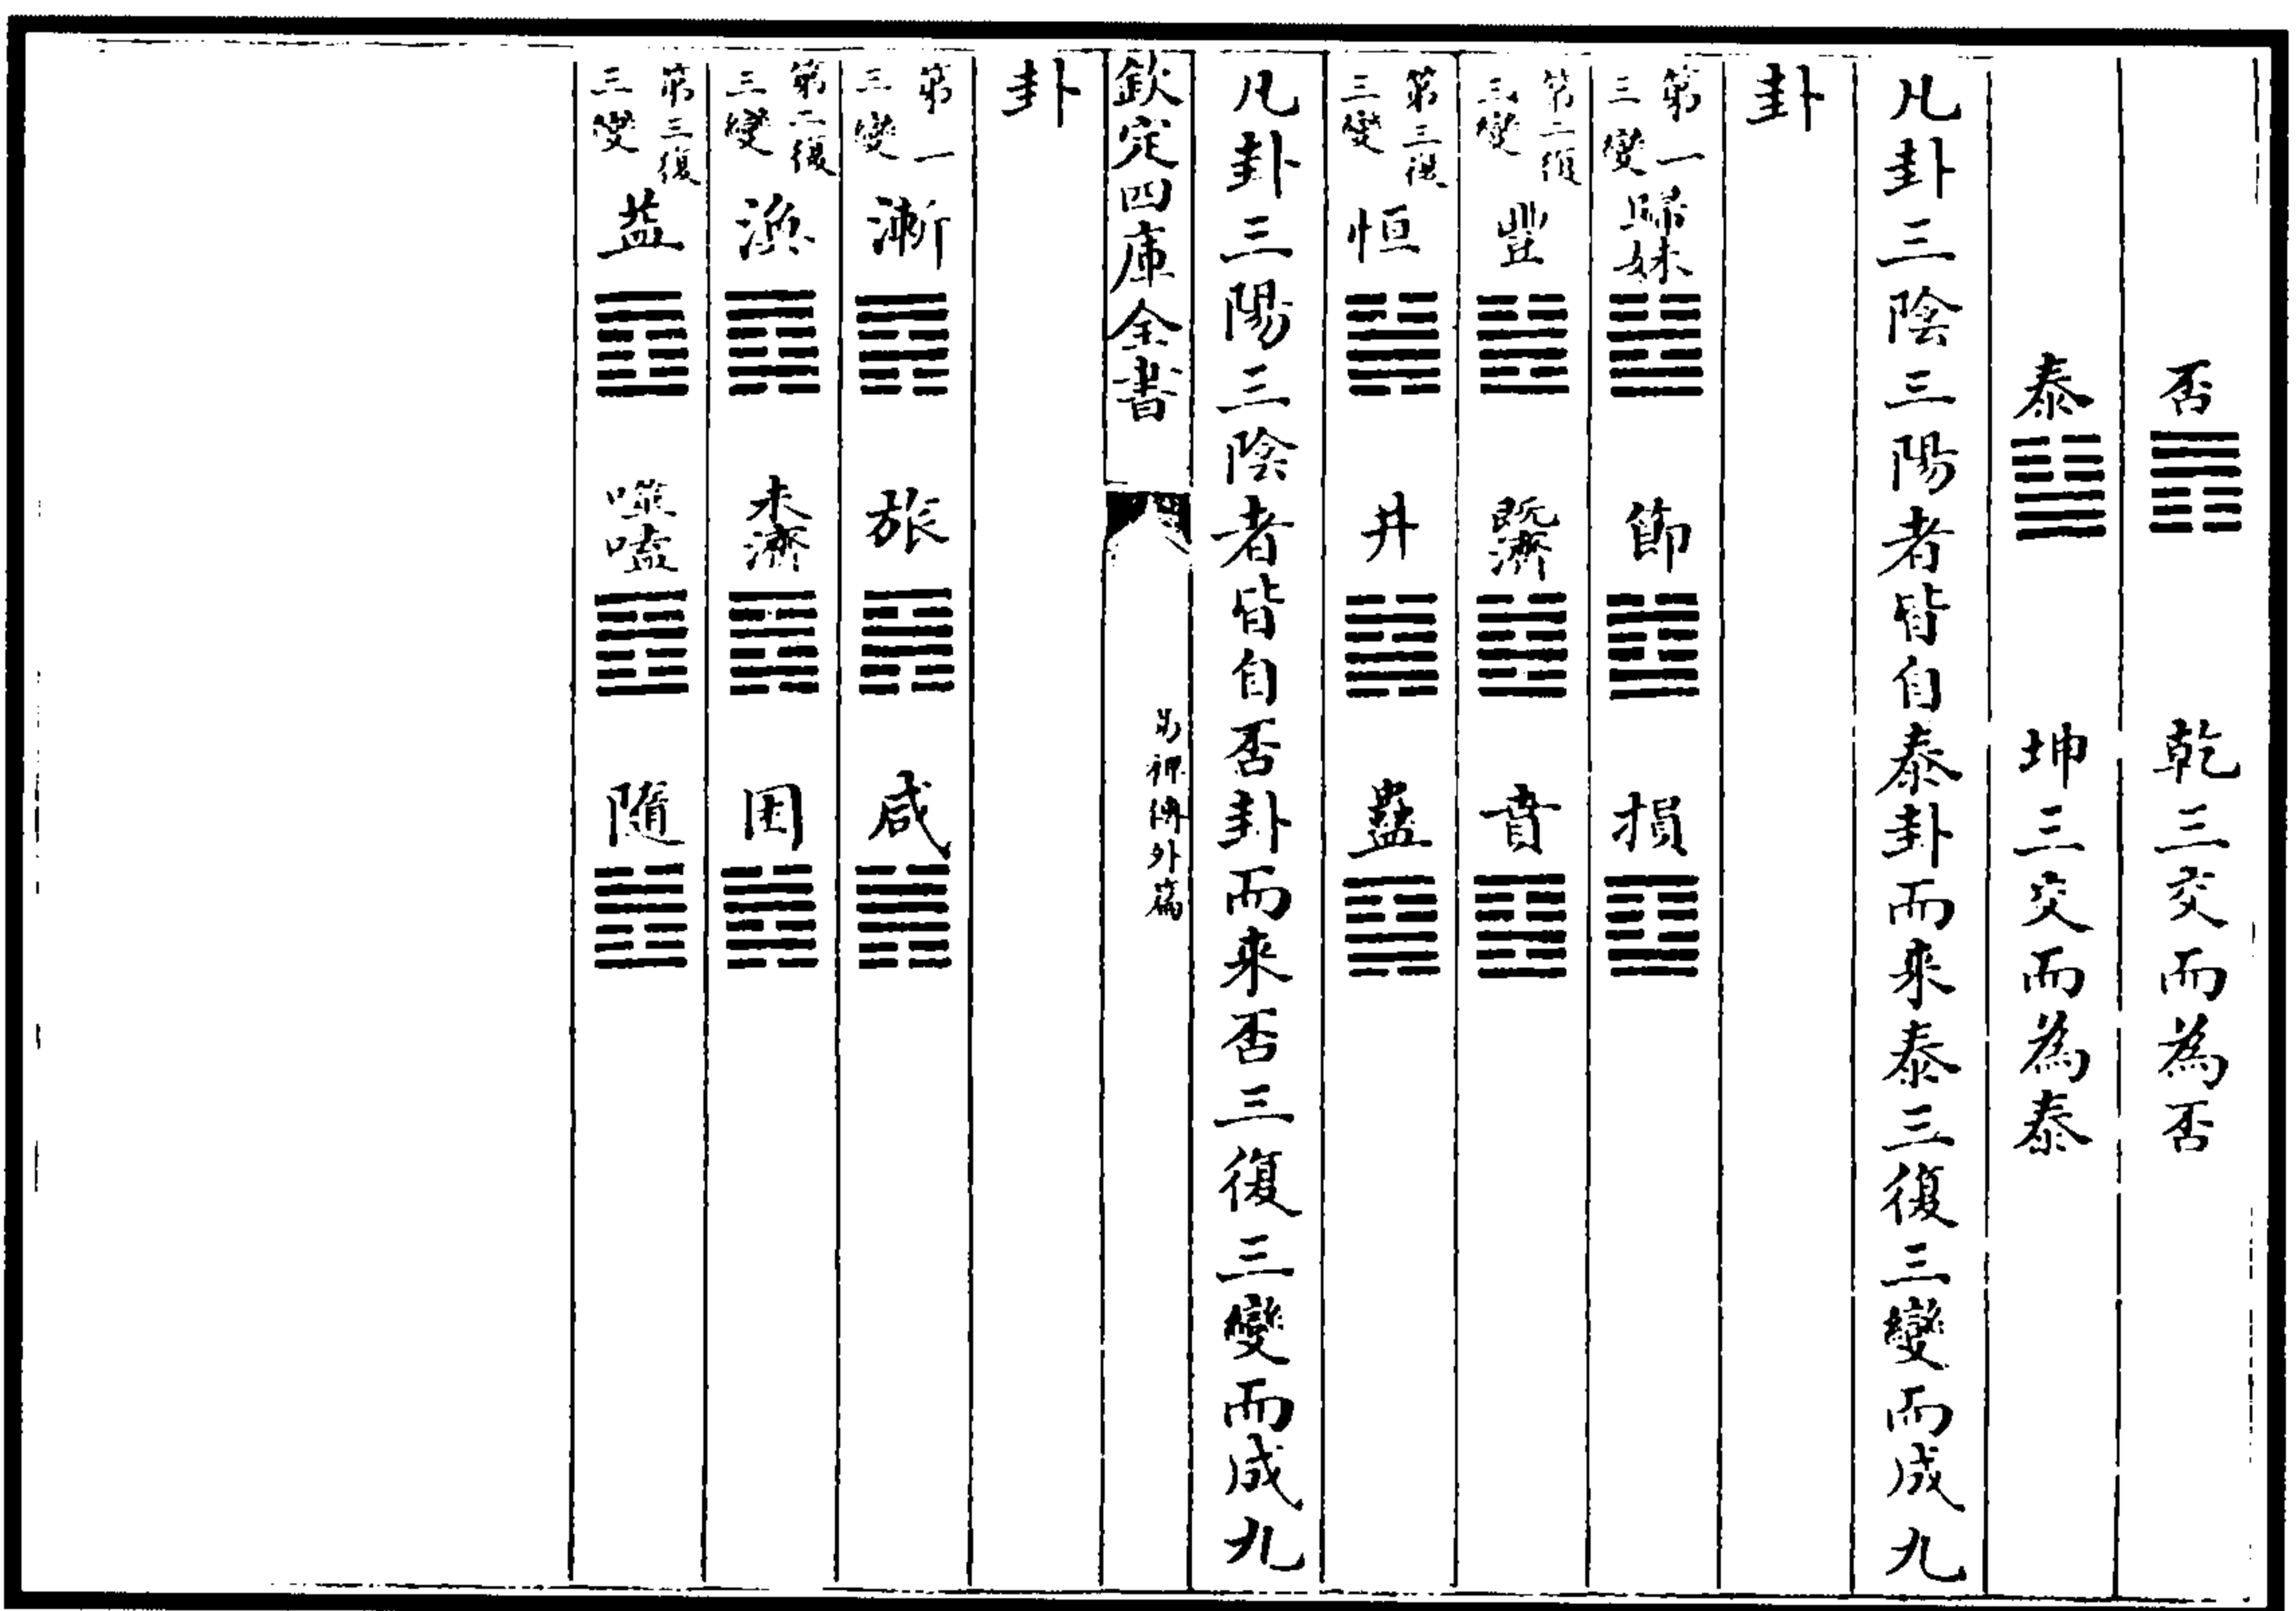 否䷋ 乾三交而為否
泰䷊ 坤三交而為泰
凡卦三陰三陽者皆自泰卦而来泰三復三變而成九
卦
第一三變 歸妹䷵ 節䷻ 損䷨
第二復三變 豐䷶ 既濟䷾ 賁䷕
第三復三變 恒䷟ 井䷯ 蠱䷑
凡卦三陽三陰者皆自否卦而来否三復三變而成九
欽定四庫全書
易裨傳外篇
卦
第一三變 漸䷴ 旅䷷ 咸䷞
第二復三變 渙䷺ 未濟䷿ 困䷮
第三復三變 益䷩ 噬嗑䷔ 隨䷐